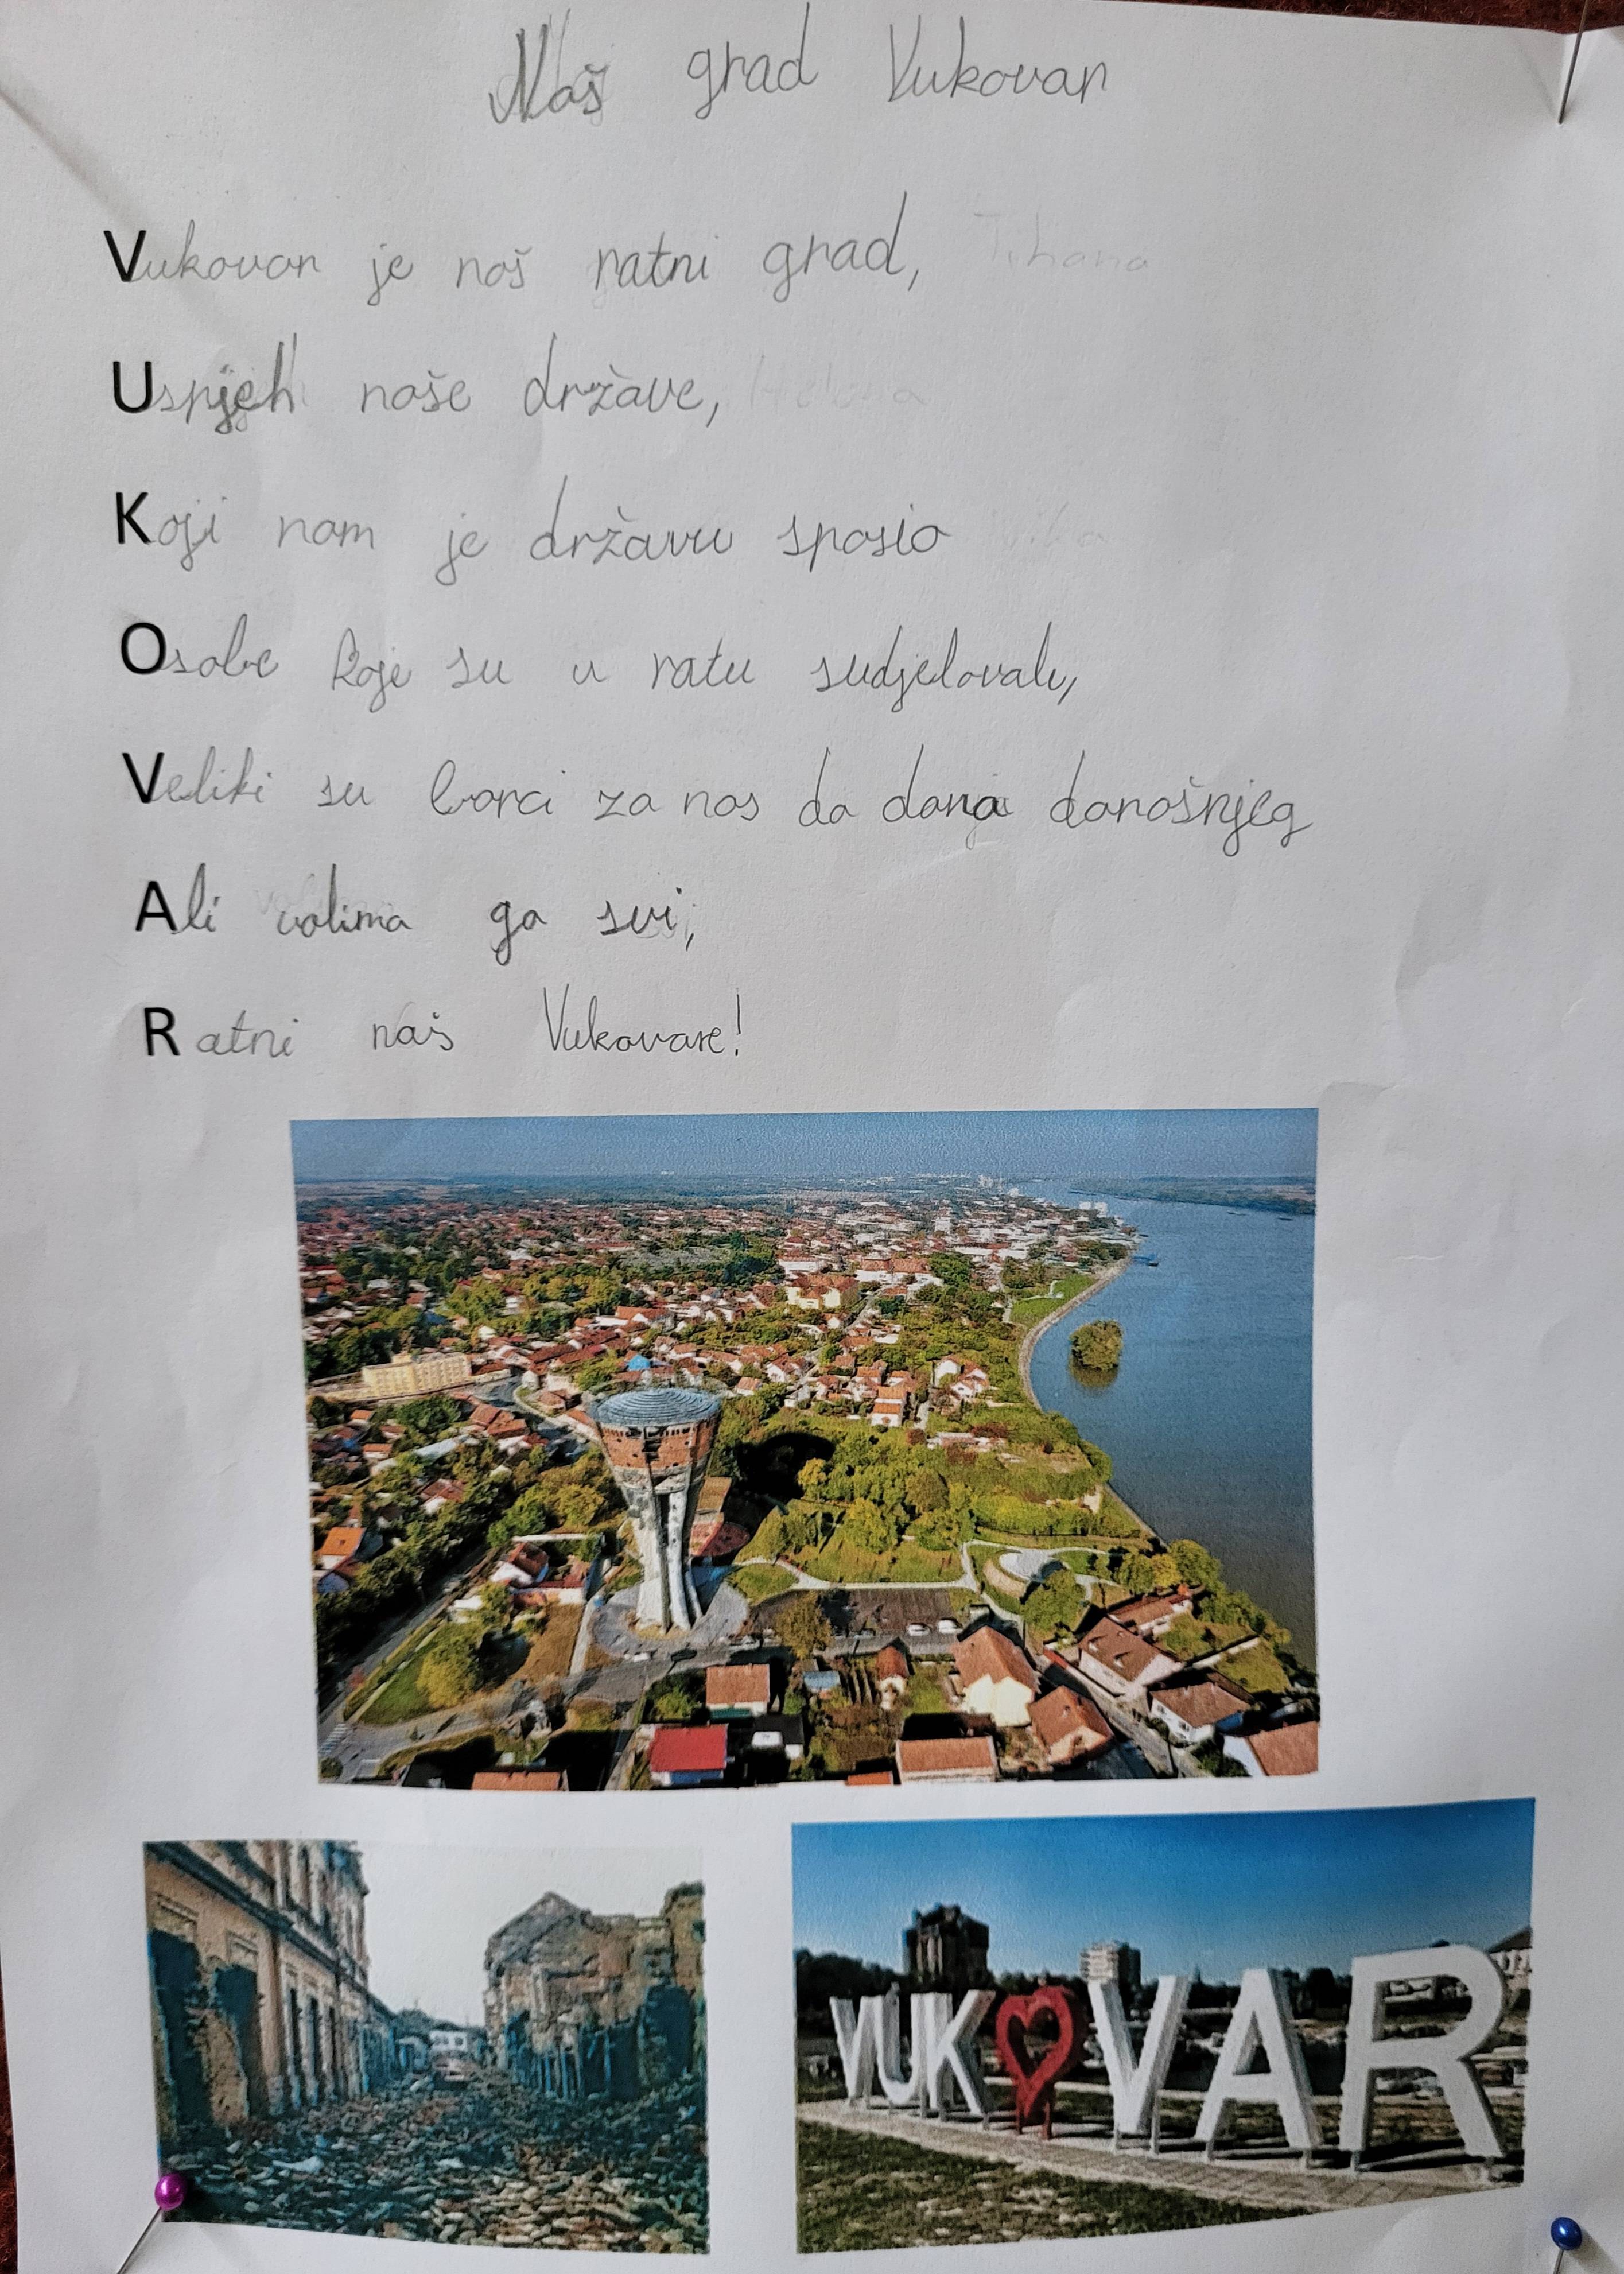 Naš grad Vukovar
Vukovar je naš ratni grad, Tihana
Uspjeh naše države, Helena
Koji nam je državu spasio Nika
Osobe koje su u ratu sudjelovale,
Veliki su borci za nas do dana današnjeg
Ali volima ga svi,
Ratni naš Vukovare!
VUKOVAR